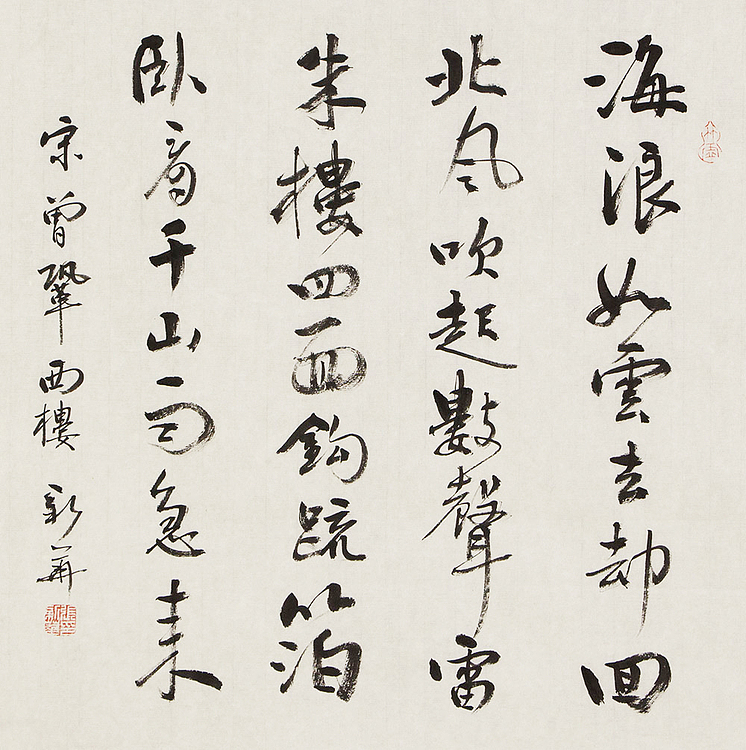 海浪如雲去却囬
北風吹起數聲雷
朱樓四面鈎疏箔
臥看千山雨急来
宋曾鞏西樓 新華